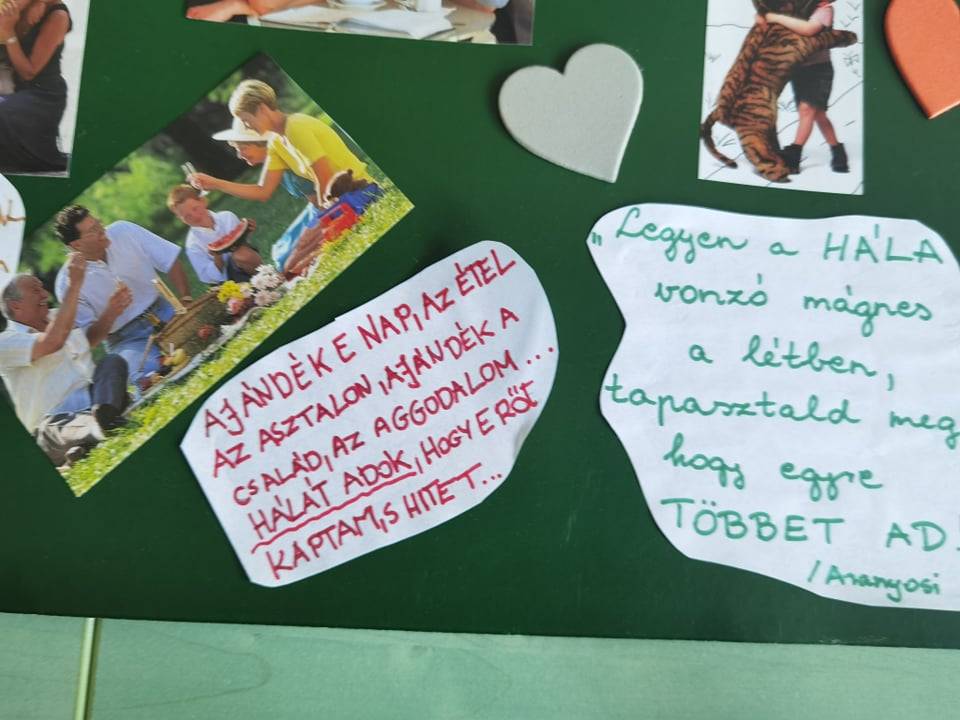 AJÁNDÉK E NAP, AZ ÉTEL
AZ ASZTALON, AJÁNDÉK A
CSALÁD, AZ AGGODALOM...
HÁLÁT ADOK, HOGY ERŐT
KAPTAM, S HITET...
„Legyen a HÁLA
vonzó mágnes
a létben,
tapasztald meg
hogy egyre
TÖBBET AD!
/Aranyosi